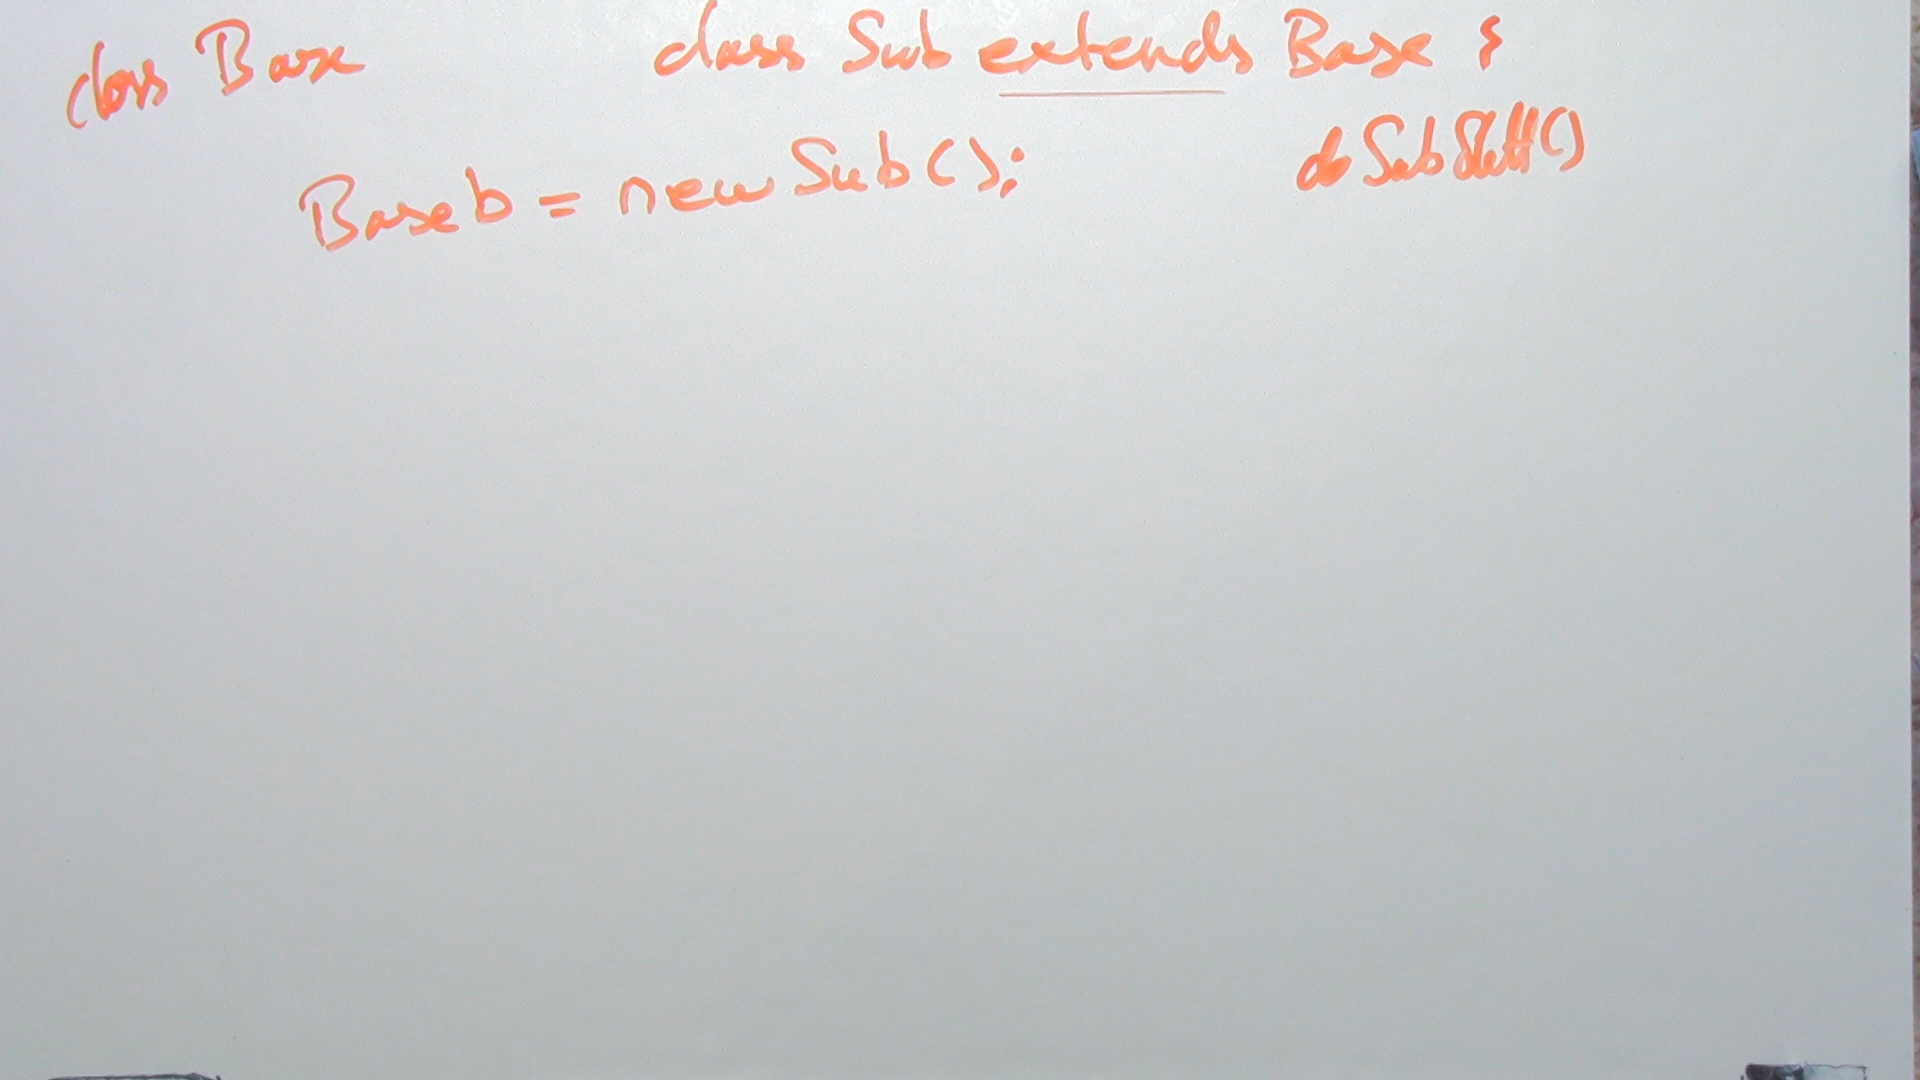 class Base
class Sub extends Base {
doSubStuff()
Base b = new Sub();